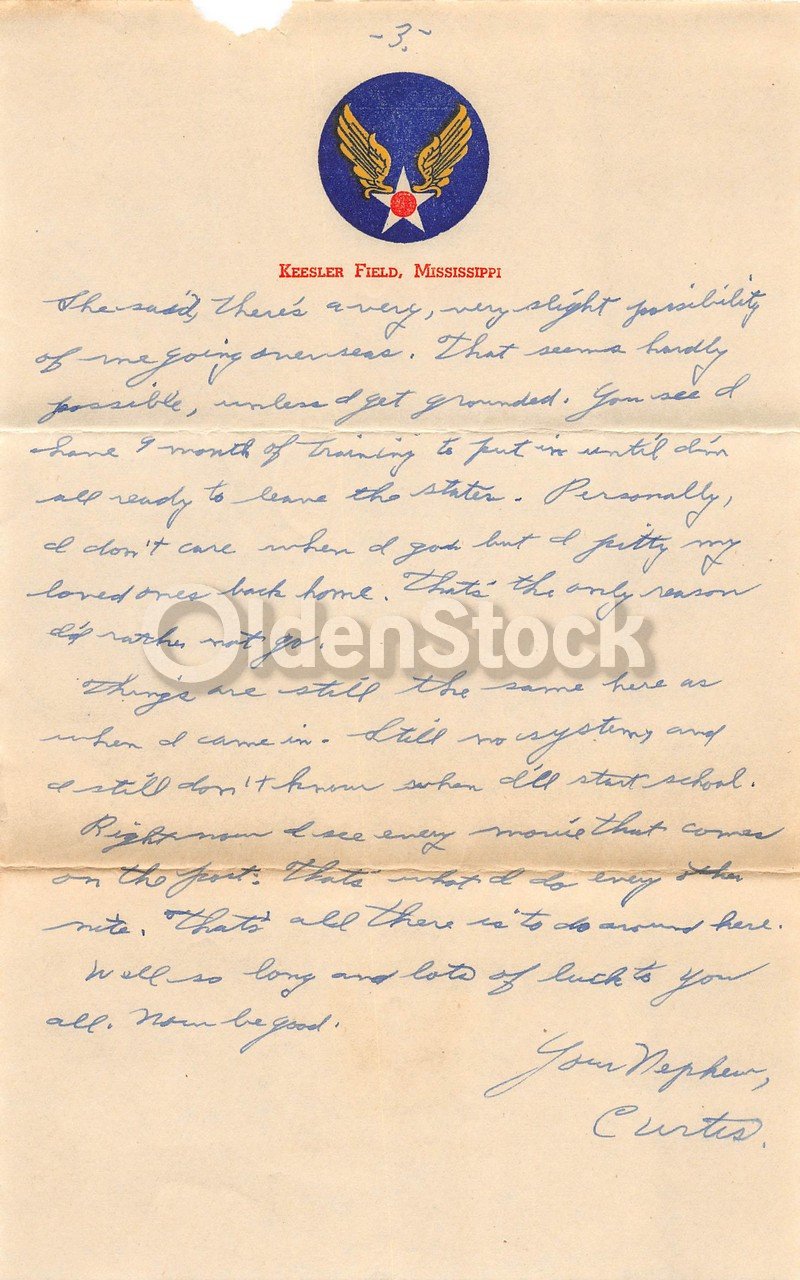 -3.-
KEESLER FIELD, MISSISSIPPI
She said, there's a very, very slight possibility
of me going over seas. That seems hardly
possible, unless I get grounded. You see I
have 9 month of training to put in until I'm
all ready to leave the states. Personally,
I don't care when I go but I pitty my
loved ones back home. Thats' the only reason
I'd rather not go.
OldenStock
Things are still the same here as
when I came in. Still no system, and
I still don't know when I'll start school.
Right now I see every movie that comes
on the post. Thats' what I do every other
nite. Thats' all there is to do around here.
Well so long and lots of luck to you
all. Now be good.
Your Nephew,
Curtis.